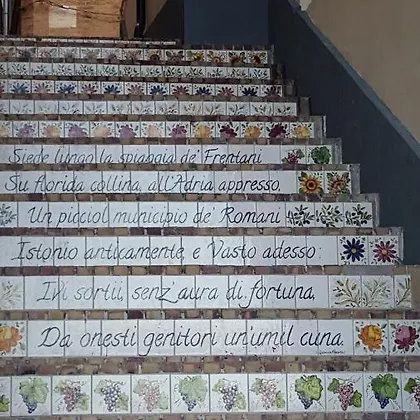 Siede lungo la spiaggia de' Frentani
Su florida collina, all'Adria appresso,
Un picciol municipio de' Romani
Istonio anticamente, e Vasto adesso:
Ivi sortii, senz'aura di fortuna,
Da onesti genitori un'umil cuna.